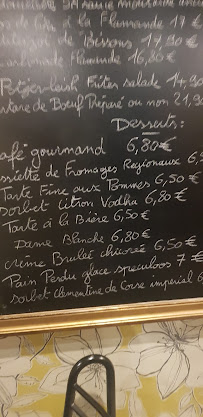 à la Flamande 17 €
de Bissons 17,90 €
Carbonnade Flamande 16,80 €
Potjevleesh Frites salade 14,90
tartare de Boeuf Préparé ou non 21,9
Desserts:
café gourmand 6,80€
assiette de Fromages Régionaux 6,5
Tarte Fine aux Pommes 6,50 €
sorbet citron Vodka 6,80 €
Tarte à la Bière 6,50€
Dame Blanche 6,80€
creme Brulée chicorée 6,50€
Pain Perdu glace speculoos 7 €
sorbet Clémentine de Corse imperial 6